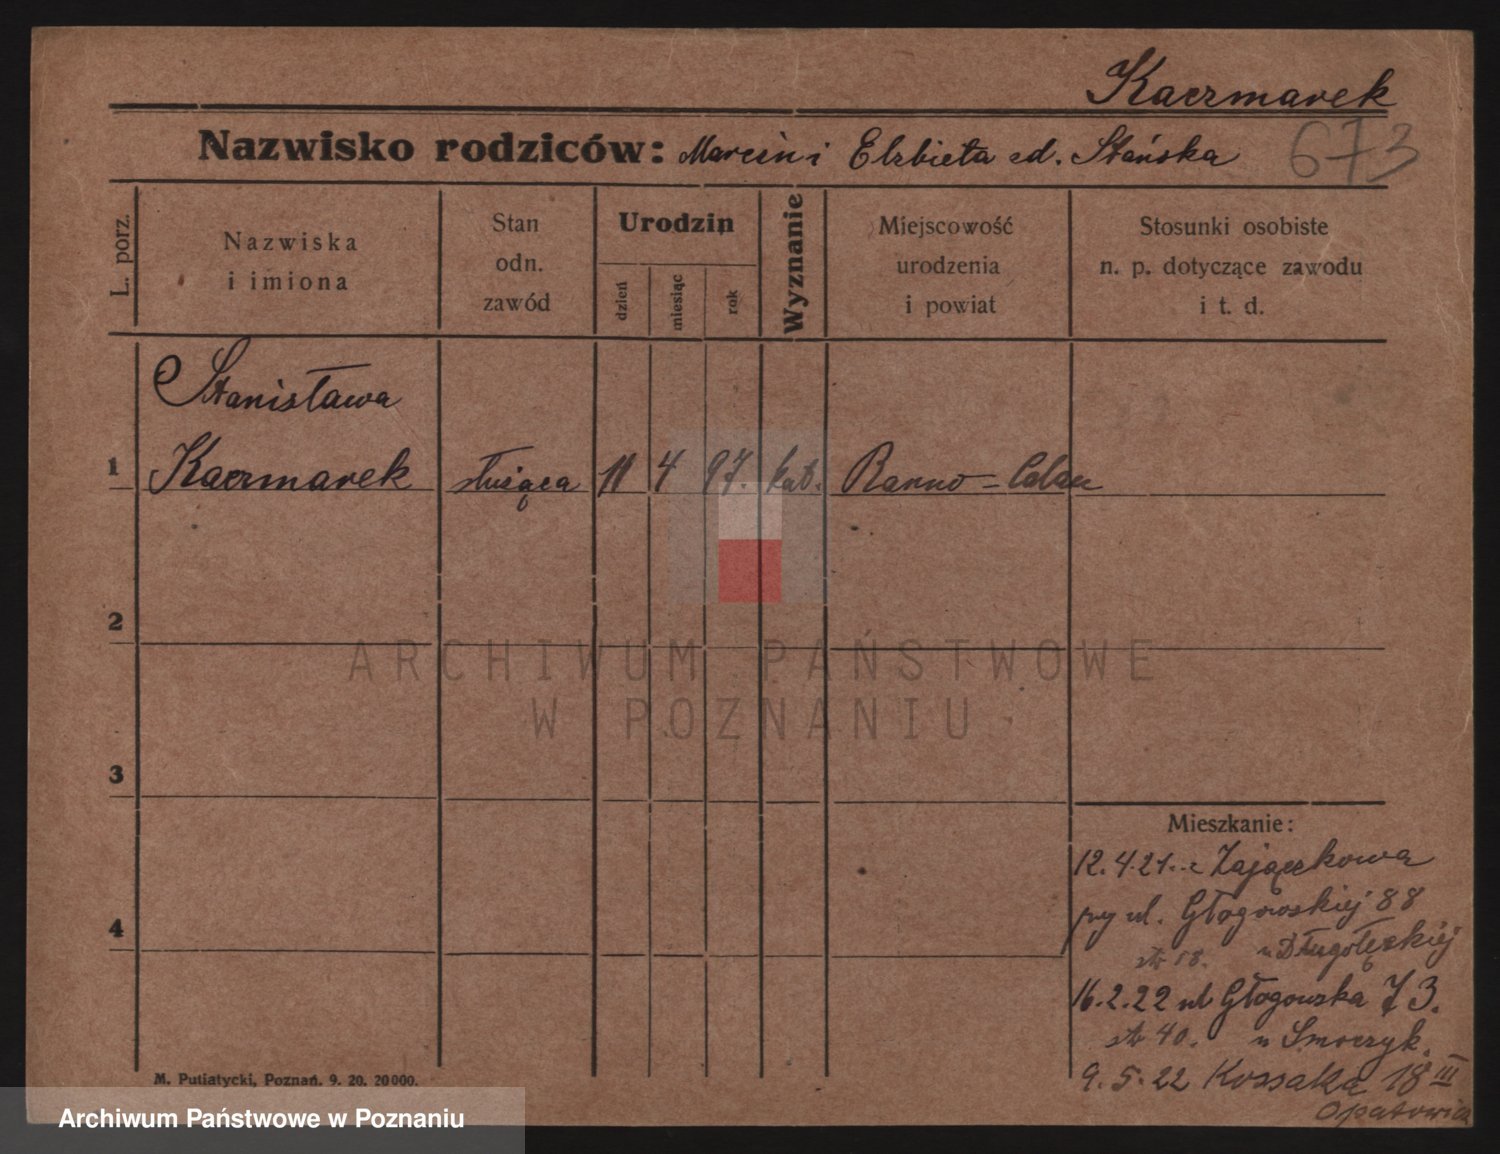 Kaczmarek
Nazwisko rodziców: Marcin i Elżbieta zd. Stańska 673
L. porz.
Nazwiska
i imiona
Stan
odn.
zawód
Urodzin
dzień
miesiąc
rok
Wyznanie
Miejscowość
urodzenia
i powiat
Stosunki osobiste
n. p. dotyczące zawodu
i t. d.
Stanisława
1 Kaczmarek służąca 11 4 97. kat. Ranno =
2
ARCHIWUM PAŃSTWOWE
W POZNANIU
3
Mieszkanie:
12.4.21. Zajączkowa
4
ul. Głogowskiej 88
str 18. u Długołęckiej
16.2.22 ul Głogowska 73.
str 40. u Smoczyk.
9.5.22 Kossaka 18 III
Opatowicz
M. Putiatycki, Poznań. 9. 20. 20000.
Archiwum Państwowe w Poznaniu